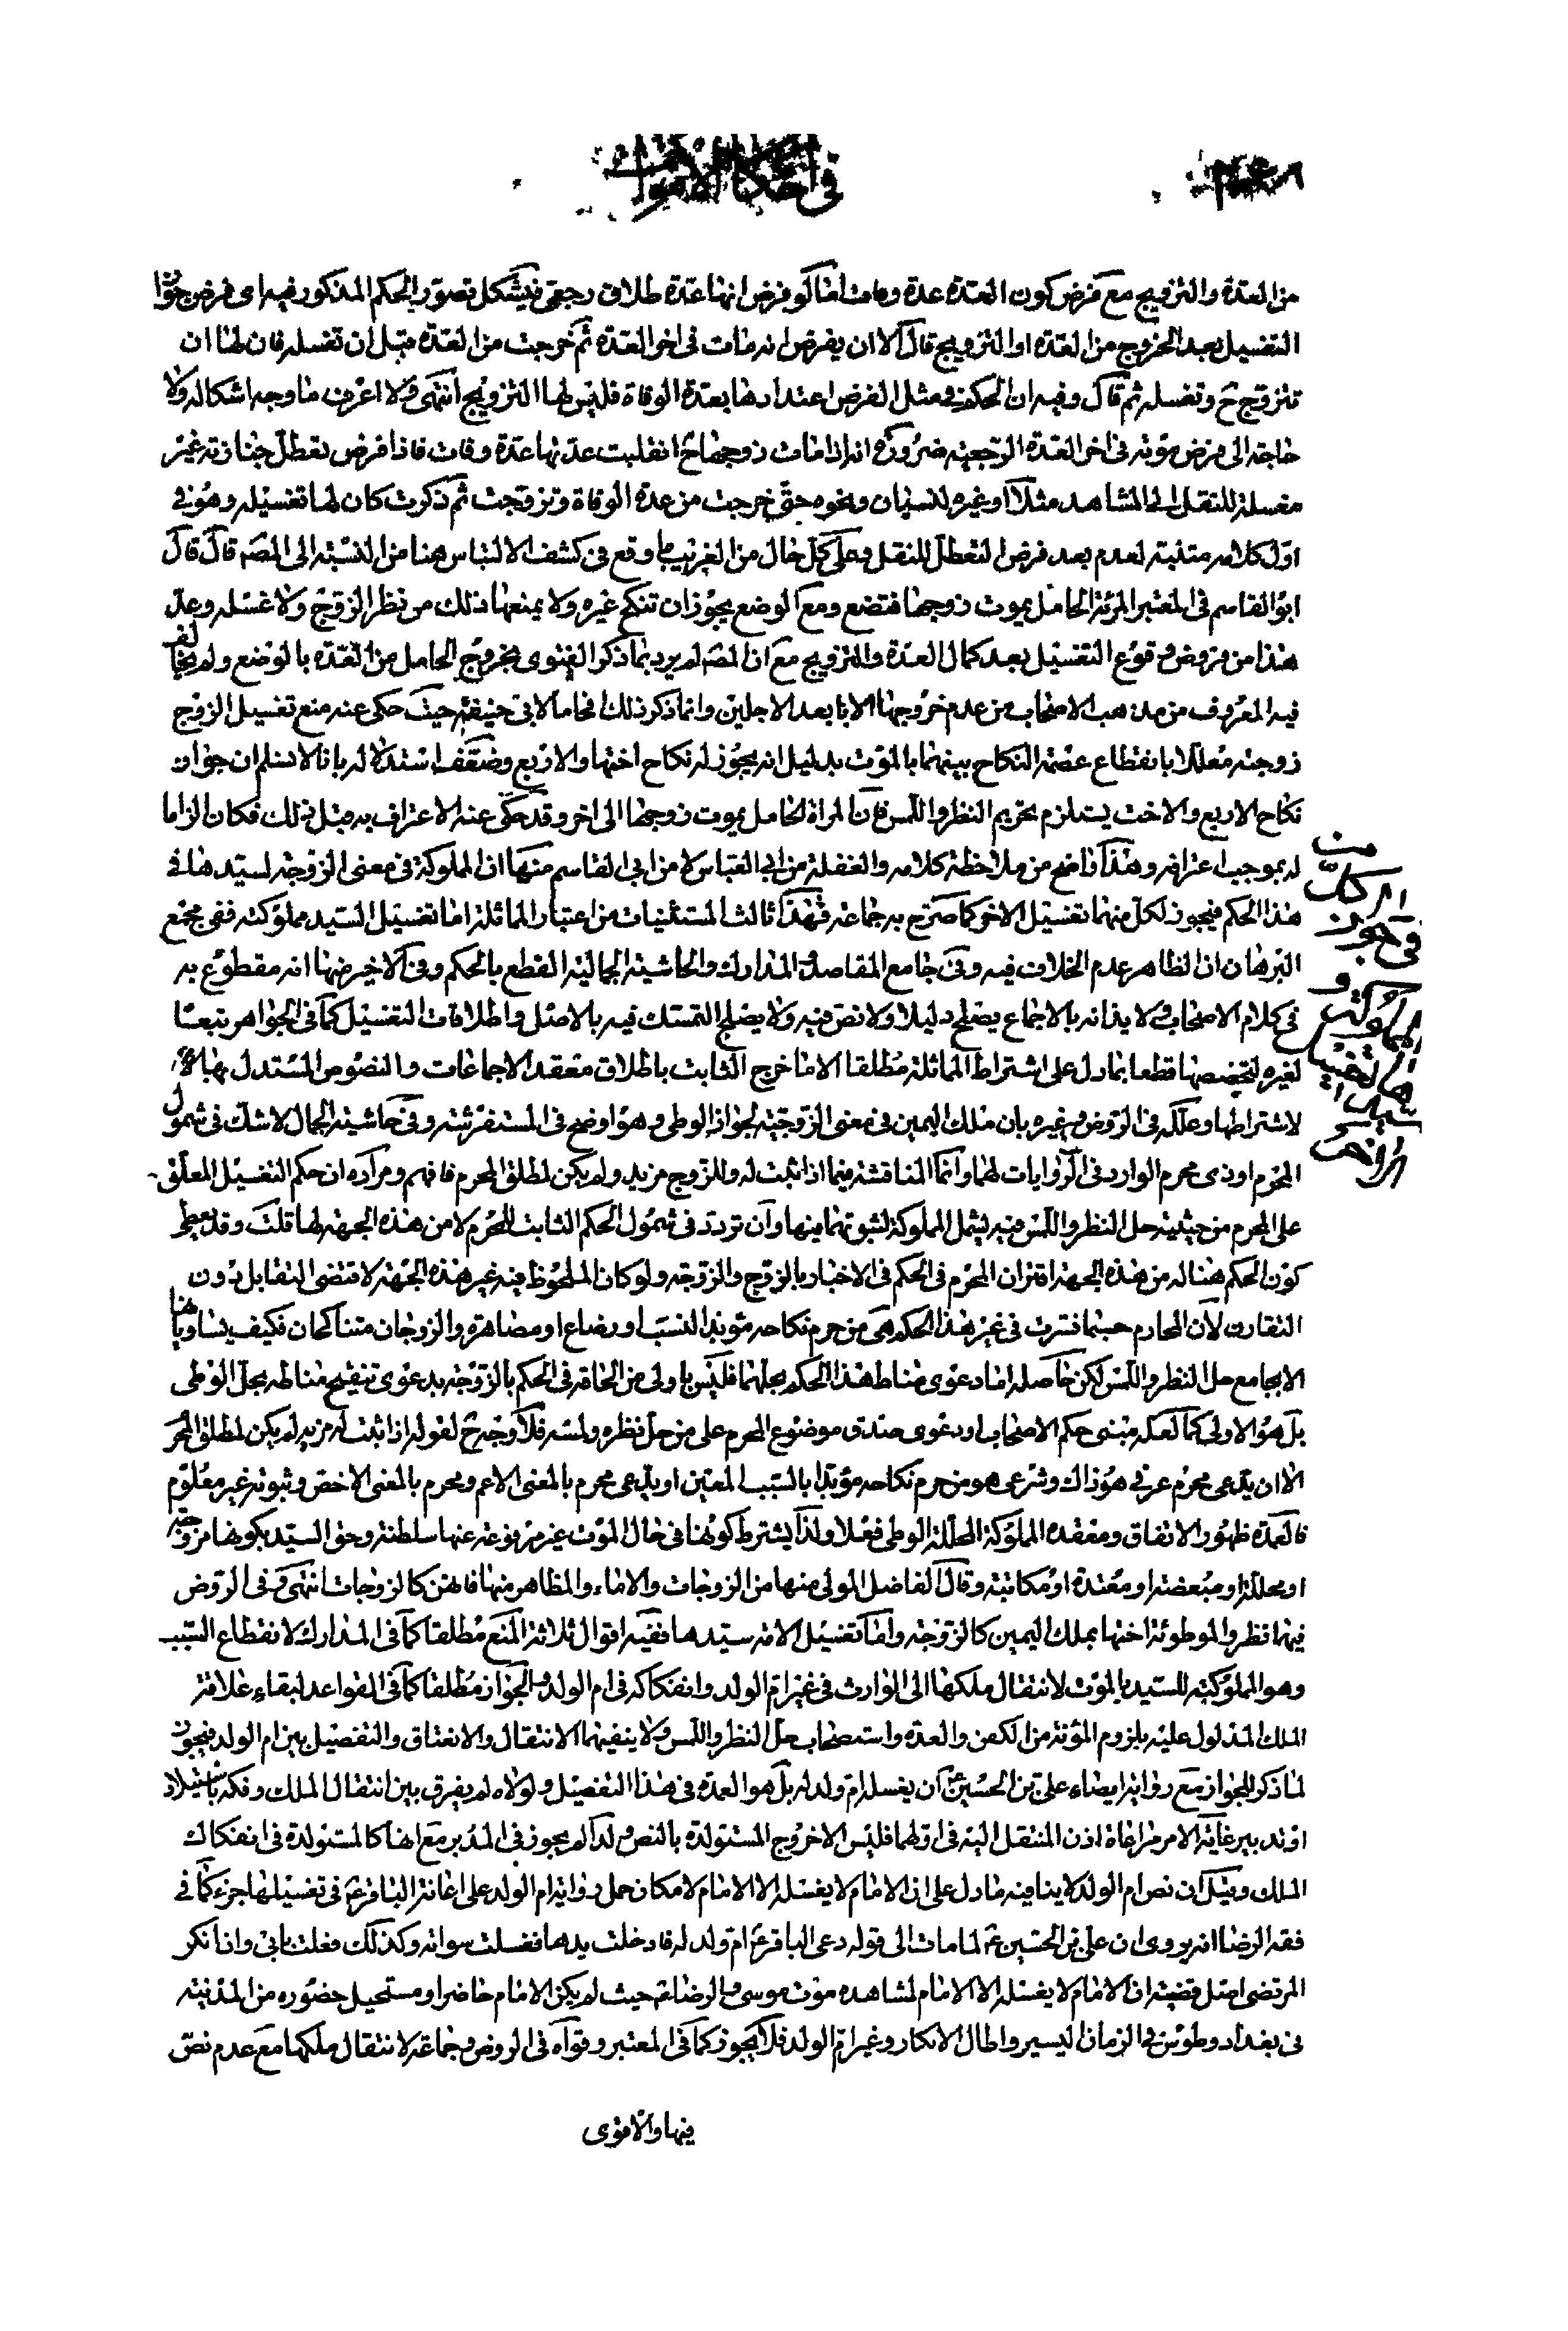 في احكام الاموات
من العدة والتزويج مع فرض كون العدة عدة وفات اما لو فرض انها عدة طلاق رجعي فيشكل تصوير الحكم المذكور فيه اي فرض جواز
التغسيل بعد الخروج من العدة او التزويج قال الا ان يفرض انه مات في اخر العدة ثم خرجت من العدة قبل ان تغسله فان لها ان
تتزوج ح وتغسله ثم قال وفيه ان الحكم في مثل الفرض اعتدادها بعدة الوفاة فليس لها التزويج انتهى ولا اعرف ما وجه اشكاله ولا
حاجة الى فرض موته في اخر العدة الرجعية ضرورة انه اذا مات زوجها ح انقلبت عدتها عدة وفات فاذا فرض تعطل جنازته غير
مغسلة للنقل الى المشاهد مثلا او غيره لنسيان ونحوه حتى خرجت من عدة الوفاة وتزوجت ثم ذكرت كان لها تغسيله وهو في
اول كلامه متنبه لعدم بعد فرض التعطل للنقل وعلى كل حال من الغريب ما وقع في كشف الالتباس هنا من النسبة الى المصه قال قال
ابو القاسم في المعتبر المرئة الحامل يموت زوجها فتضع ومع الوضع يجوز ان تنكح غيره ولا يمنعها ذلك من نظر الزوج ولا غسله وعد
هذا من فروض وقوع التغسيل بعد كمال العدة والتزويج مع ان المصه لم يرد بما ذكر الفتوى بخروج الحامل من العدة بالوضع ولم يخالف
فيه المعروف من مذهب الاصحاب من عدم خروجها الا بابعد الاجلين وانما ذكر ذلك الحاما لابي حنيفة حيث حكى عنه منع تغسيل الزوج
زوجته معللا بانقطاع عصمة النكاح بينهما بالموت بدليل انه يجوز له نكاح اختها والاربع وضعف استدلاله بانا لا نسلم ان جواز
نكاح الاربع والاخت يستلزم تحريم النظر واللمس فان المراة الحامل يموت زوجها الى اخر وقد حكى عنه الاعتراف به قبل ذلك فكان الزاما
له بموجب اعترافه وهذا واضح من ملاحظة كلامه والغفلة من ابي العباس لا من ابي القاسم منها ان المملوكة في معنى الزوجة لسيدها في
هذا الحكم فيجوز لكل منهما تغسيل الاخر كما صرح به جماعة فهذا ثالث المستثنيات من اعتبار المماثلة اما تغسيل السيد مملوكته ففي مجمع
البرهان ان الظاهر عدم الخلاف فيه وفي جامع المقاصد والمدارك والحاشية الجمالية القطع بالحكم وفي الاخير منها انه مقطوع به
في كلام الاصحاب ولا يذانه بالاجماع يصلح دليلا ولا نص فيه ولا يصلح التمسك فيه بالاصل واطلاقات التغسيل كما في الجواهر تبعا
لغيره لتخصصها قطعا بما دل على اشتراط المماثلة مطلقا الا ما خرج الثابت باطلاق معقد الاجماعات والنصوص المستدل بها
لاشتراطها وعلله في الروض وغيره بان ملك اليمين في معنى الزوجية لجواز الوطي وهو اوضح في المستفرشة وفي حاشية الجمال لا شك في شمول
المحرم او ذي محرم الوارد في الروايات لهما وانما المناقشة فيما اذا ثبت له وللزوج مزيد ولم يكن لمطلق المحرم فافهم ومراده ان حكم التغسيل المعلق
على المحرم من حيثية حل النظر واللمس فيه يشمل المملوكة لثبوتهما فيها وان تردد في شمول الحكم الثابت للمحرم لا من هذه الجهة لها قلت وقد يعطي
كون الحكم هنا له من هذه الجهة اقتران المحرم في الحكم في الاخبار بالزوج والزوجة ولو كان الملحوظ فيه غير هذه الجهة لاقتضى التقابل دون
التقارن لان المحارم حيثما فسرت في غير هذا الحكم هي من حرم نكاحه مؤبدا لنسب او رضاع او مصاهرة والزوجان متناكحان فكيف يتساويا هنا
الا بجامع حل النظر واللمس لكن حاصله اما دعوى مناط هذا الحكم بحلهما فليس باولى من الحاقه في الحكم بالزوجة بدعوى تنقيح مناطه بحل الوطي
بل هو الاولى كما لعله مبنى حكم الاصحاب او دعوى صدق موضوع المحرم على من حل نظره ولمسه فلا وجه ح لقوله اذا ثبت له مزيد لم يكن لمطلق المحرم
الا ان يدعى محرم عرفي هو ذاك وشرعي هو من حرم نكاحه مؤبدا بالسبب المعين او يدعى محرم بالمعنى الاعم ومحرم بالمعنى الاخص وثبوته غير معلوم
فالعمدة ظهور الاتفاق ومعقده المملوكة المحللة الوطي فعلا ولذا يشترط كونها في حال الموت غير مرفوعة عنها سلطنة وحق السيد بكونها مزوجة
او محللة او مبعضة او معتدة او مكاتبة وقال الفاضل المولى منها من الزوجات والاماء والمظاهر منها فاهن كالزوجات انتهى وفي الروض
فيها نظر والموطوئة اختها بملك اليمين كالزوجة واما تغسيل الامة سيدها ففيه اقوال ثلاثة المنع مطلقا كما في المدارك لانقطاع السبب
وهو المملوكية للسيد بالموت لانتقال ملكها الى الوارث في غير ام الولد وانفكاكه في ام الولد والجواز مطلقا كما في القواعد لبقاء علاقة
الملك المدلول عليه بلزوم المؤنة من الكفن والعدة واستصحاب حل النظر واللمس ولا ينفيهما الانتقال والانعتاق والتفصيل بين ام الولد فيجوز
لما ذكر للجواز مع رواية ايصاء علي بن الحسين ع ان يغسله ام ولد له بل هو العمدة في هذا التفصيل ولولاه لم يفرق بين انتقال الملك وفكه باستيلاد
او تدبير غاية الامر مراعاة اذن المنتقل اليه في اولهما فليس الا خروج المستولدة بالنص ولذا لم يجوز في المدبر مع انها كالمستولدة في انفكاك
الملك وقيل ان نص ام الولد لا ينافيه ما دل على ان الامام لا يغسله الا الامام لامكان حمل رواية ام الولد على اعانة الباقر ع في تغسيلها جزء كما في
فقه الرضا انه يروى ان علي بن الحسين ع لما مات الى قوله دعى الباقر ع ام ولد له فادخلت يدها فغسلت سواته وكذلك فعلت بابي وان انكر
المرتضى اصل قضية ان الامام لا يغسله الا الامام لمشاهدة موت موسى والرضا ع حيث لم يكن الامام حاضرا ومستحيل حضوره من المدينة
في بغداد وطوس في الزمان اليسير واطال الانكار وغير ام الولد فلا يجوز كما في المعتبر وقواه في الروض وجماعة لانتقال ملكها مع عدم نص
فيها والاقوى